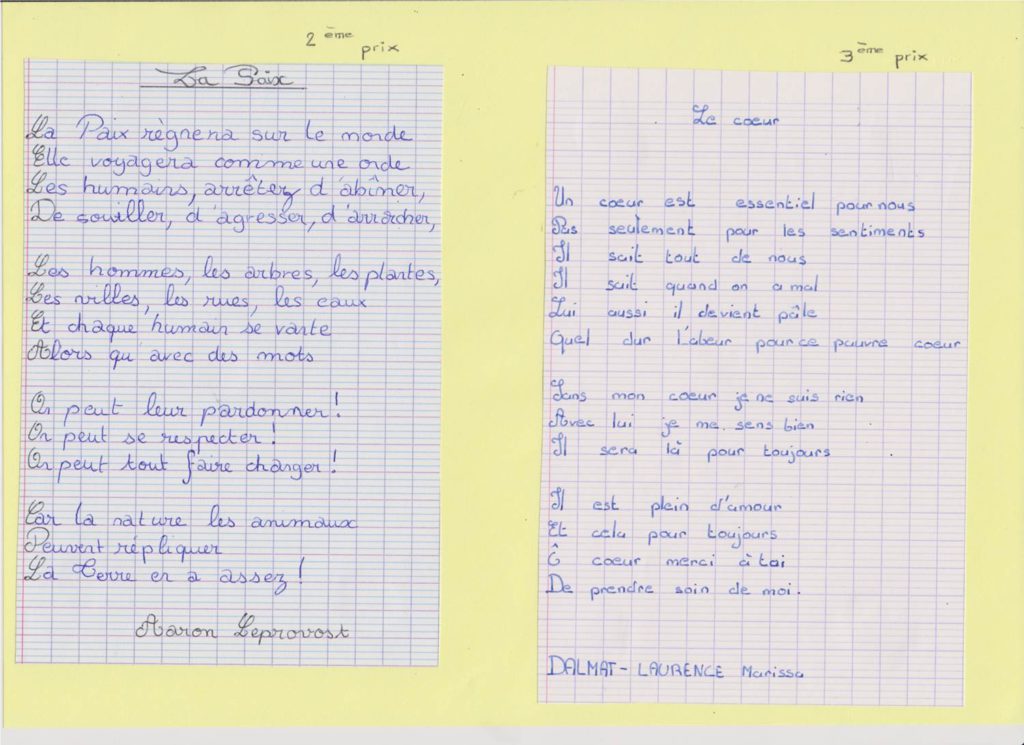 2ème prix
La Paix
La Paix règnera sur le monde
Elle voyagera comme une onde
Les humains, arrêtez d'abîmer,
De souiller, d'agresser, d'arracher,
Les hommes, les arbres, les plantes,
Les villes, les rues, les eaux
Et chaque humain se vante
Alors qu'avec des mots
On peut leur pardonner !
On peut se respecter !
On peut tout faire changer !
Car la nature les animaux
Peuvent répliquer
La Terre en a assez !
Aaron Leprovost
3ème prix
Le coeur
Un coeur est essentiel pour nous
Pas seulement pour les sentiments
Il sait tout de nous
Il sait quand on a mal
Lui aussi il devient pâle
Quel dur l'abeur pour ce pauvre coeur
Sans mon coeur je ne suis rien
Avec lui je me sens bien
Il sera là pour toujours
Il est plein d'amour
Et cela pour toujours
Ô coeur merci à toi
De prendre soin de moi.
DALMAT-LAURENCE Marissa